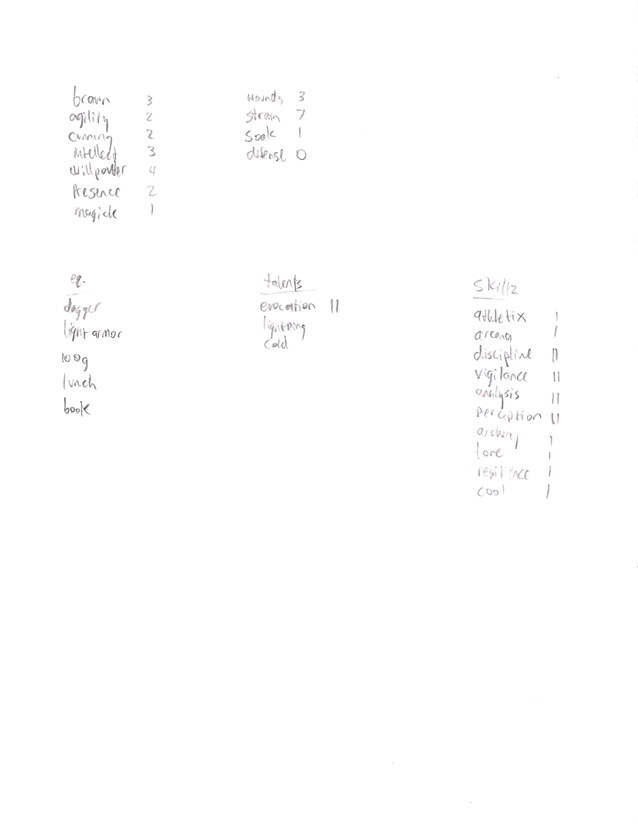 brawn 3
agility 2
cunning 2
intellect 3
willpower 4
presence 2
magick 1
wounds 3
strain 7
soak 1
defense 0
eq.
dagger
light armor
100g
lunch
book
talents
evocation II
lightning
cold
skillz
athletix I
arcana I
discipline II
vigilance II
analysis II
perception II
archery I
lore I
resilience I
cool I